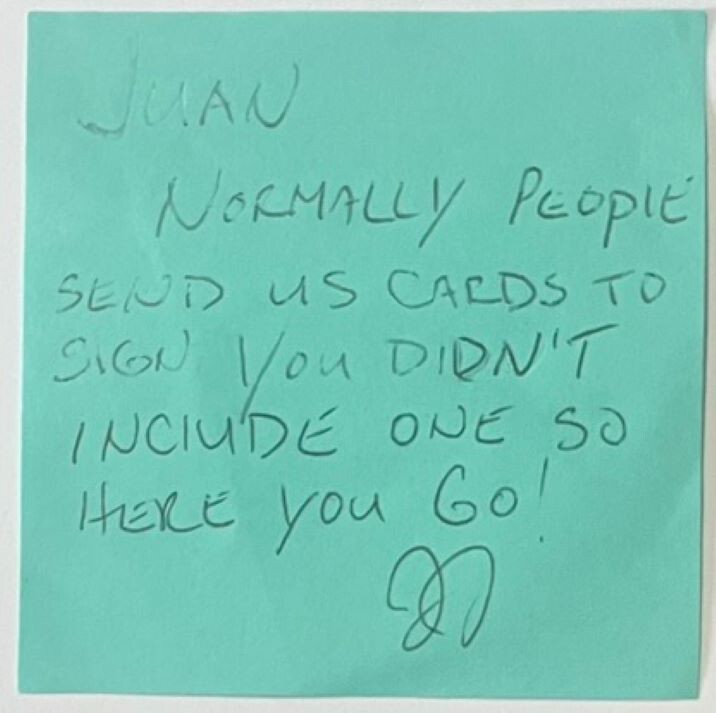 JUAN
NORMALLY PEOPlE
SEND US CARDS TO
SIGN YOU DIDN'T
INClUDE ONE SO
HERE YOU GO!